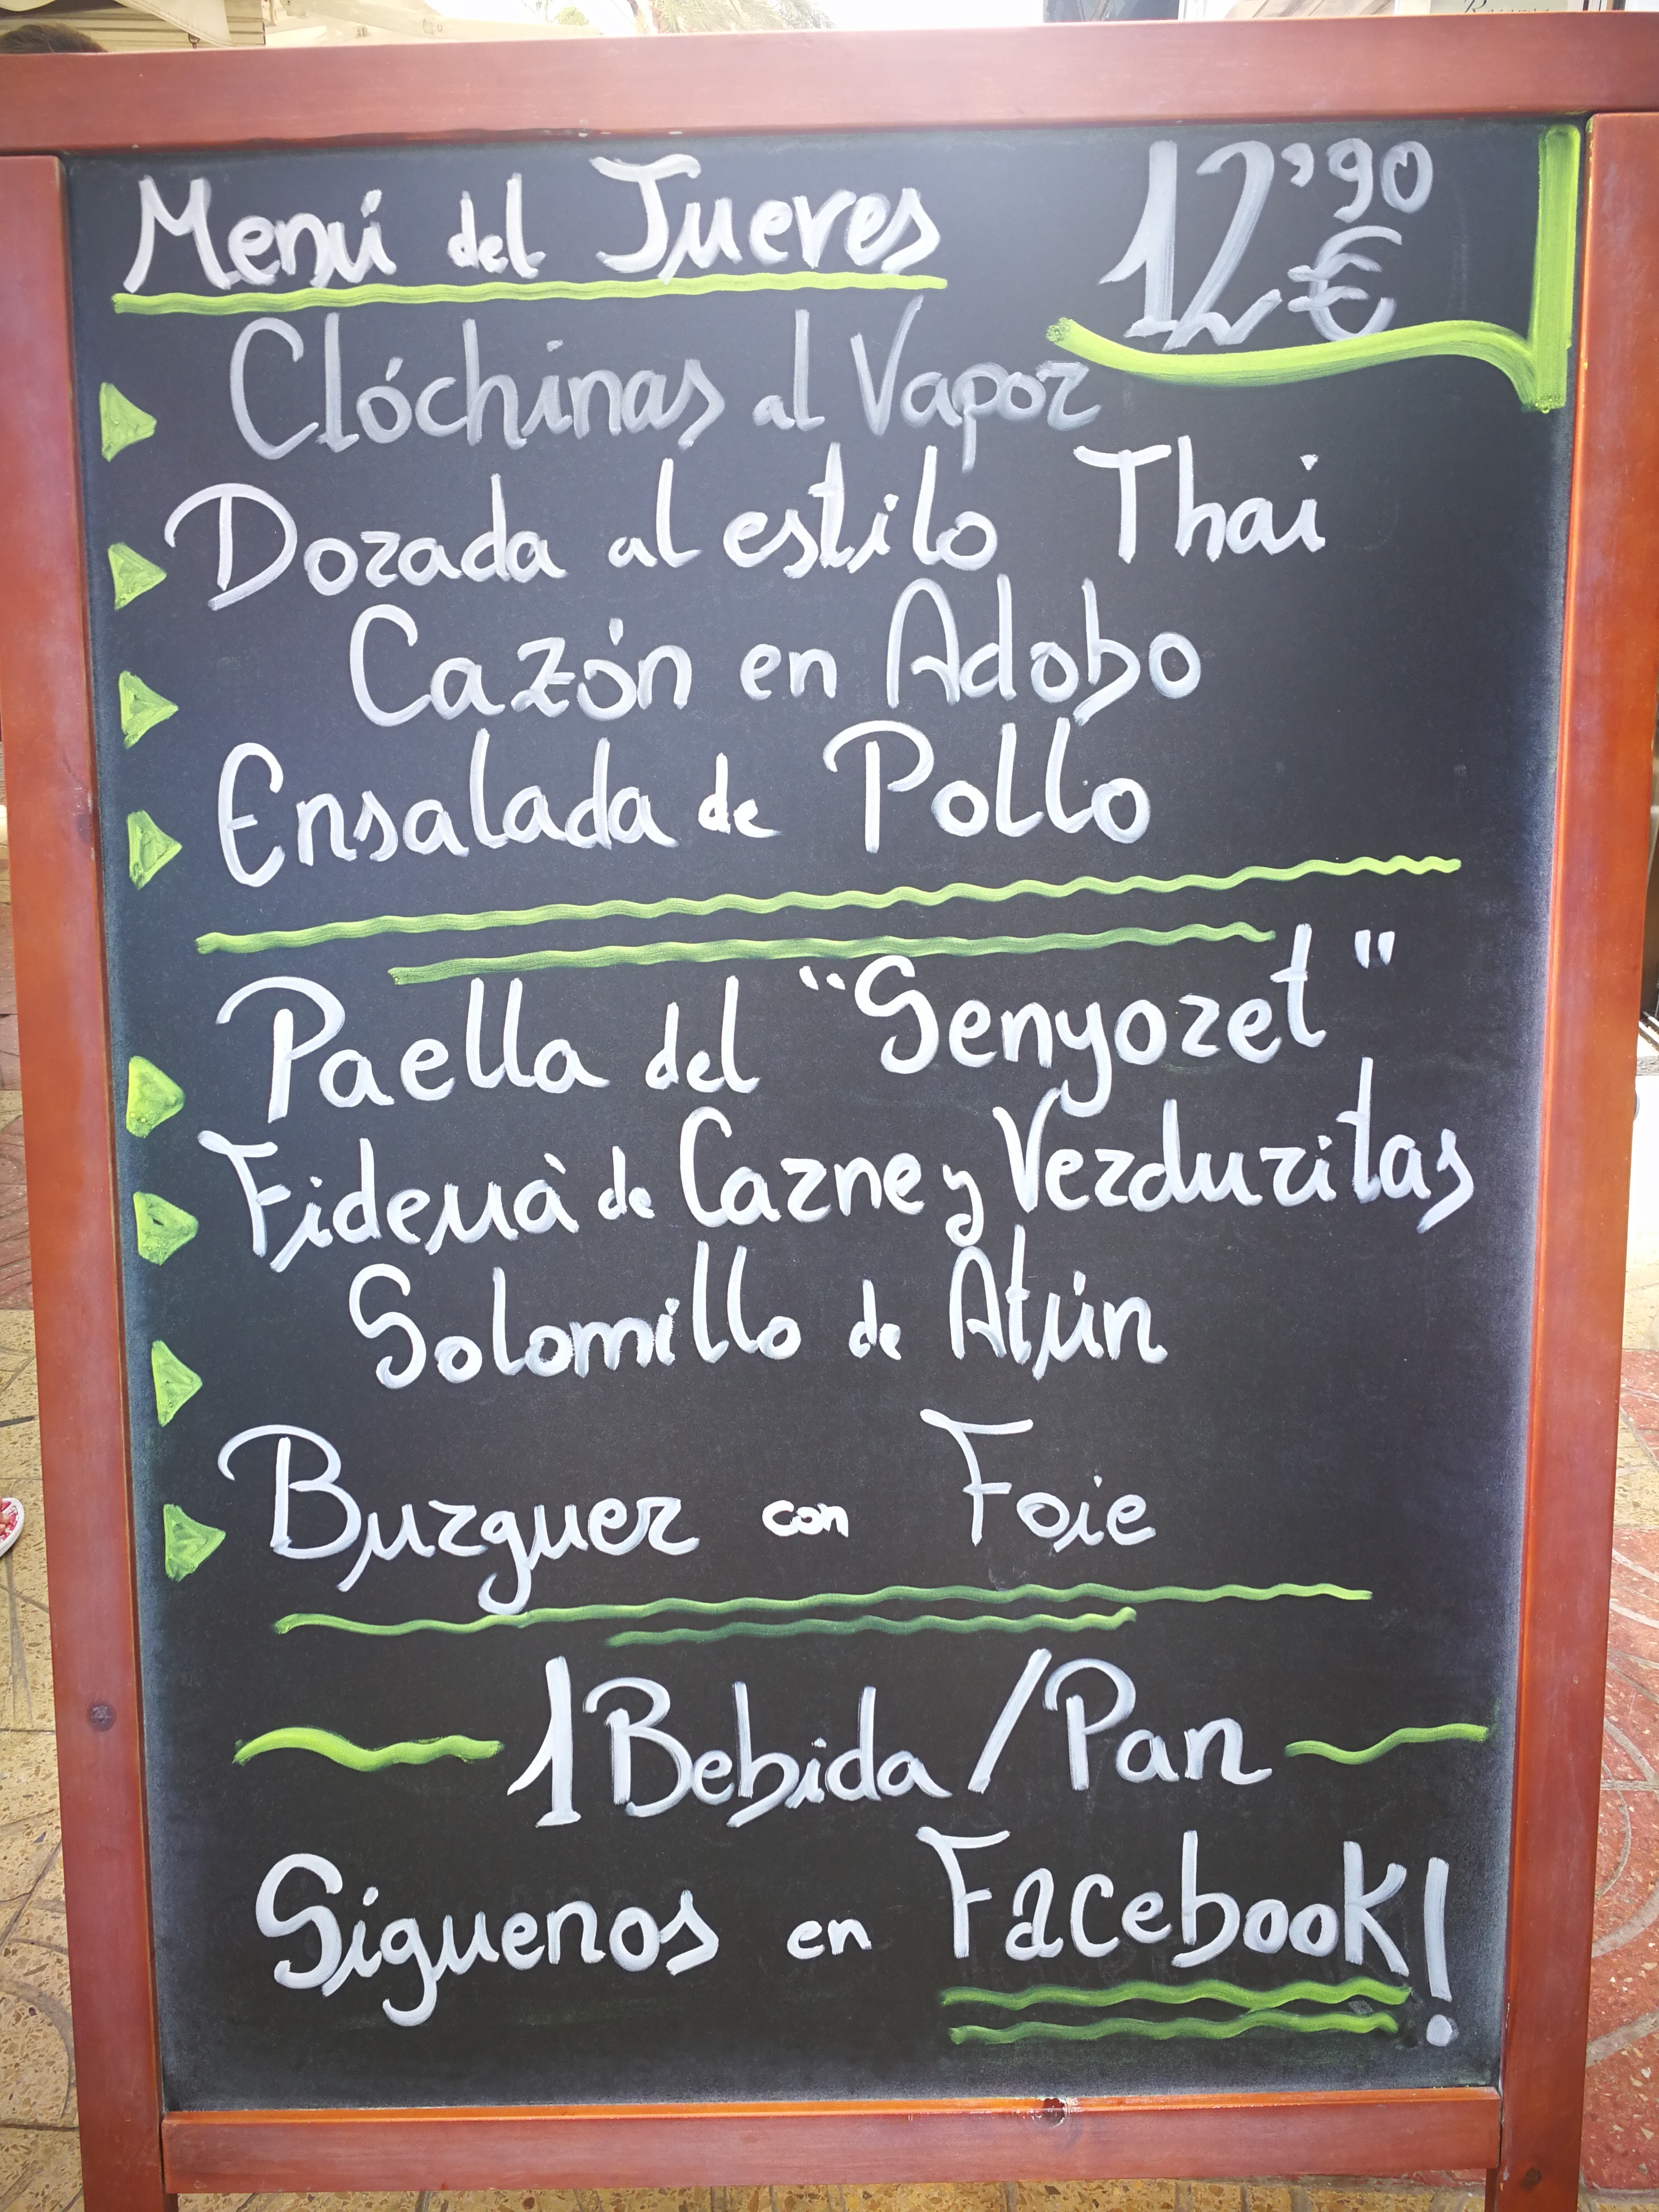 Menú del Jueves
12'90
€
Clóchinas al Vapor
Dorada al estilo Thai
Cazón en Adobo
Ensalada de Pollo
Paella del "Senyoret"
Fideuà de Carne y Verduritas
Solomillo de Atún
Burguer con Foie
1 Bebida / Pan
Siguenos en Facebook!